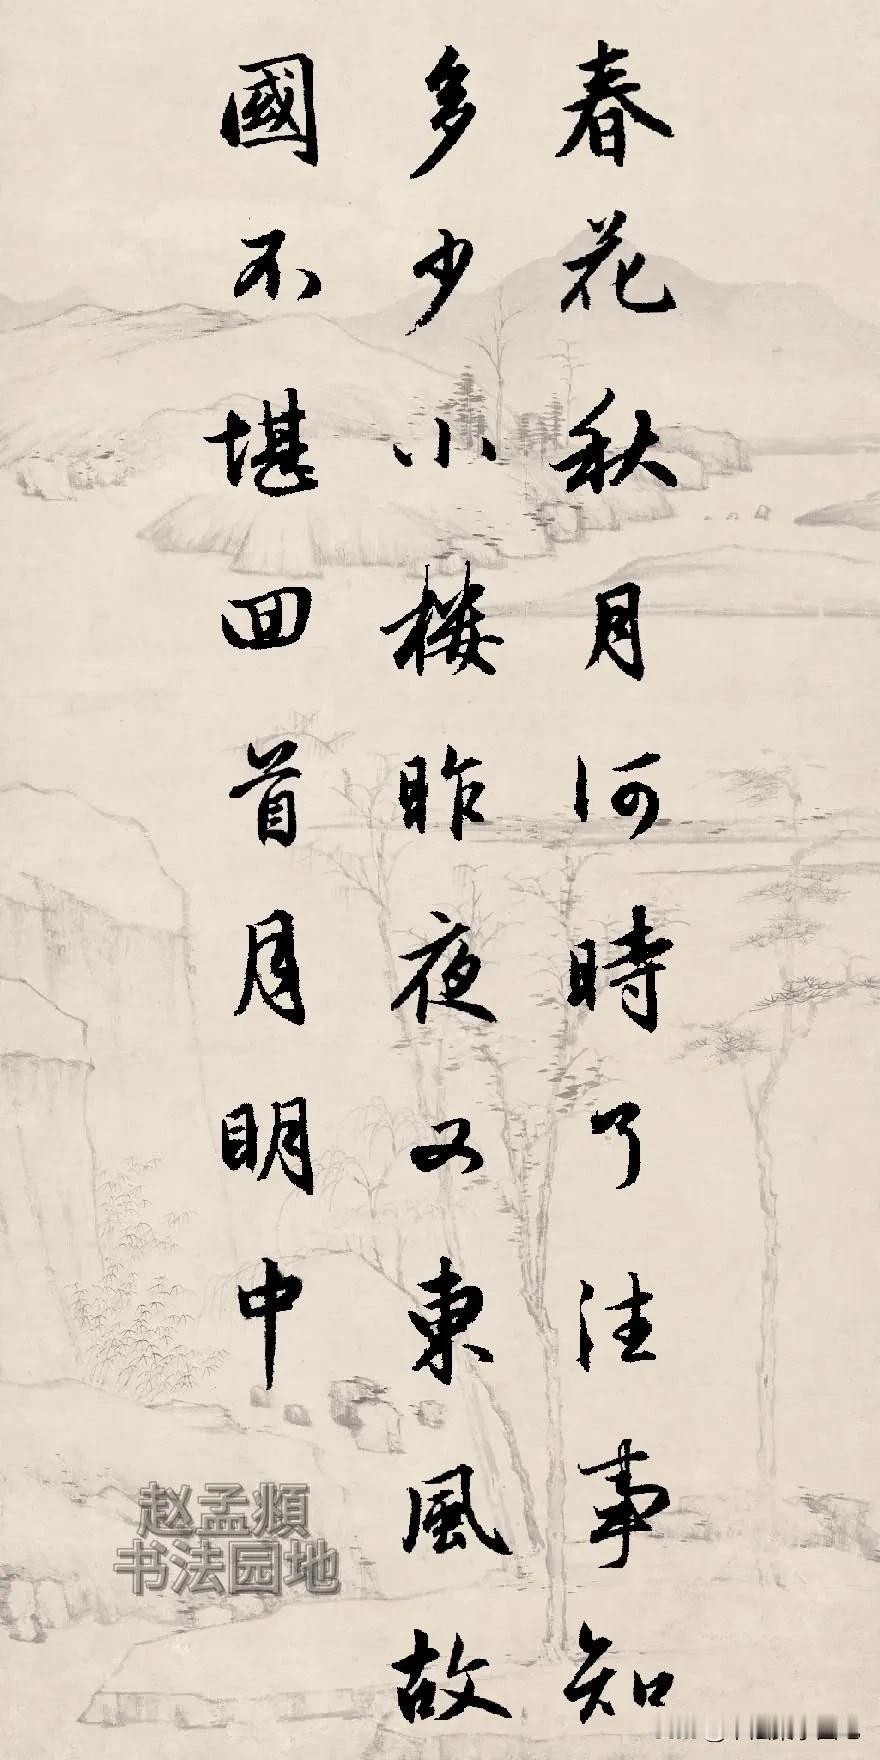 春花秋月何時了往事知
多少小楼昨夜又東風故
國不堪回首月明中
赵孟頫
书法园地